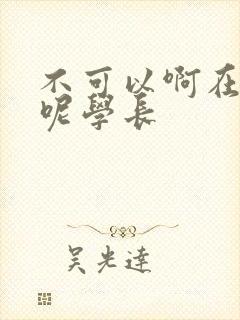 不可以啊在
呢學長
吴光達